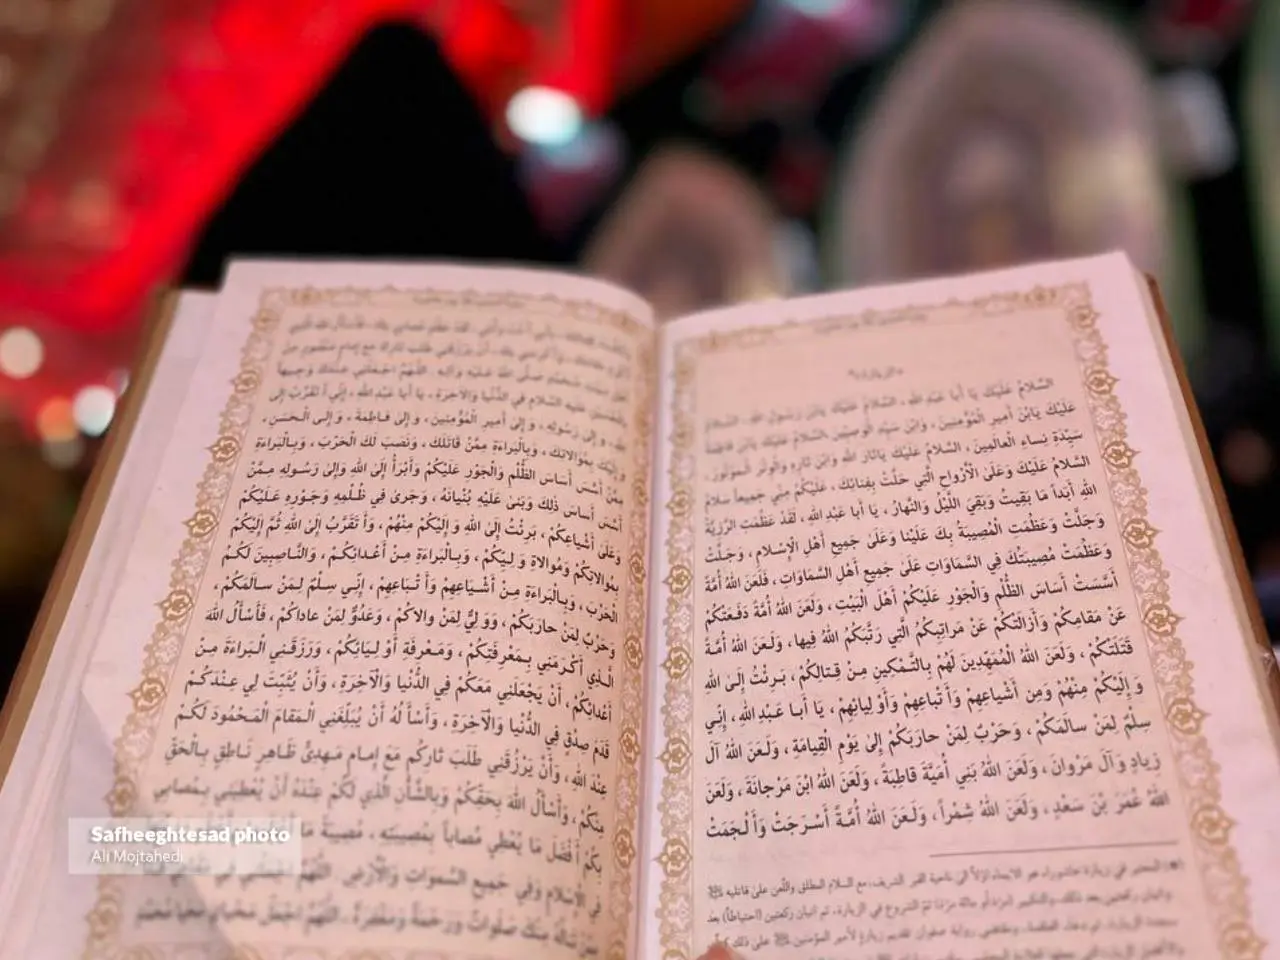 «الزيارة»
السَّلامُ عَلَيْكَ يَا أَبا عَبْدِ اللهِ ، السَّلامُ عَلَيْكَ يَابْنَ رَسُولِ اللهِ ، السَّلامُ
عَلَيْكَ يَابْنَ أَمِيرِ الْمُؤْمِنِينَ ، وَابْنَ سَيِّدِ الْوَصِيِّينَ ، السَّلامُ عَلَيْكَ يَابْنَ فاطِمَةَ
سَيِّدَةِ نِساءِ الْعالَمِينَ ، السَّلامُ عَلَيْكَ يَاثَارَ اللهِ وَابْنَ ثارِهِ وَالْوِتْرَ الْمَوْتُورَ ،
السَّلامُ عَلَيْكَ وَعَلَى الْأَرْواحِ الَّتِي حَلَّتْ بِفِنائِكَ ، عَلَيْكُمْ مِنِّي جَمِيعاً سَلامُ
اللهِ أَبَداً مَا بَقِيتُ وَبَقِيَ اللَّيْلُ وَالنَّهارُ ، يَا أَبا عَبْدِ اللهِ ، لَقَدْ عَظُمَتِ الرَّزِيَّةُ
وَجَلَّتْ وَعَظُمَتِ الْمُصِيبَةُ بِكَ عَلَيْنا وَعَلَىٰ جَمِيعِ أَهْلِ الْإِسْلامِ ، وَجَلَّتْ
وَعَظُمَتْ مُصِيبَتُكَ فِي السَّمَاوَاتِ عَلَىٰ جَمِيعِ أَهْلِ السَّمَاوَاتِ ، فَلَعَنَ اللهُ أُمَّةً
أَسَّسَتْ أَسَاسَ الظُّلْمِ وَالْجَوْرِ عَلَيْكُمْ أَهْلَ الْبَيْتِ ، وَلَعَنَ اللهُ أُمَّةً دَفَعَتْكُمْ
عَنْ مَقامِكُمْ وَأَزالَتْكُمْ عَنْ مَراتِبِكُمُ الَّتِي رَتَّبَكُمُ اللهُ فِيها ، وَلَعَنَ اللهُ أُمَّةً
قَتَلَتْكُمْ ، وَلَعَنَ اللهُ الْمُمَهِّدِينَ لَهُمْ بِالتَّمْكِينِ مِنْ قِتالِكُمْ ، بَرِئْتُ إِلَىٰ اللهِ
وَإِلَيْكُمْ مِنْهُمْ وَمِنْ أَشْياعِهِمْ وَأَتْباعِهِمْ وَأَوْلِيائِهِمْ ، يَا أَبا عَبْدِ اللهِ ، إِنِّي
سِلْمٌ لِمَنْ سالَمَكُمْ ، وَحَرْبٌ لِمَنْ حارَبَكُمْ إِلىٰ يَوْمِ الْقِيامَةِ ، وَلَعَنَ اللهُ آلَ
زِيادٍ وَآلَ مَرْوانَ ، وَلَعَنَ اللهُ بَنِي أُمَيَّةَ قاطِبَةً ، وَلَعَنَ اللهُ ابْنَ مَرْجانَةَ ، وَلَعَنَ
اللهُ عُمَرَ بْنَ سَعْدٍ ، وَلَعَنَ اللهُ شِمْراً ، وَلَعَنَ اللهُ أُمَّةً أَسْرَجَتْ وَأَلْجَمَتْ
اللهِ ، وَإِلىٰ رَسُولِهِ ، وَإِلىٰ أَمِيرِ الْمُؤْمِنِينَ ، وَإِلىٰ فاطِمَةَ ، وَإِلَى الْحَسَنِ ،
وَإِلَيْكَ بِمُوالاتِكَ ، وَبِالْبَراءَةِ مِمَّنْ قاتَلَكَ ، وَنَصَبَ لَكَ الْحَرْبَ ، وَبِالْبَراءَةِ
مِمَّنْ أَسَّسَ أَساسَ الظُّلْمِ وَالْجَوْرِ عَلَيْكُمْ وَأَبْرَأُ إِلَى اللهِ وَإِلىٰ رَسُولِهِ مِمَّنْ
أَسَّسَ أَساسَ ذٰلِكَ وَبَنىٰ عَلَيْهِ بُنْيانَهُ ، وَجَرىٰ فِي ظُلْمِهِ وَجَوْرِهِ عَلَيْكُمْ
وَعَلىٰ أَشْياعِكُمْ ، بَرِئْتُ إِلَى اللهِ وَإِلَيْكُمْ مِنْهُمْ ، وَأَتَقَرَّبُ إِلَى اللهِ ثُمَّ إِلَيْكُمْ
بِمُوالاتِكُمْ وَمُوالاةِ وَلِيِّكُمْ ، وَبِالْبَراءَةِ مِنْ أَعْدائِكُمْ ، وَالنَّاصِبِينَ لَكُمُ
الْحَرْبَ ، وَبِالْبَراءَةِ مِنْ أَشْياعِهِمْ وَأَتْباعِهِمْ ، إِنِّي سِلْمٌ لِمَنْ سالَمَكُمْ ،
وَحَرْبٌ لِمَنْ حارَبَكُمْ ، وَوَلِيٌّ لِمَنْ والاكُمْ ، وَعَدُوٌّ لِمَنْ عاداكُمْ ، فَأَسْأَلُ اللهَ
الَّذِي أَكْرَمَنِي بِمَعْرِفَتِكُمْ ، وَمَعْرِفَةِ أَوْلِيائِكُمْ ، وَرَزَقَنِي الْبَراءَةَ مِنْ
أَعْدائِكُمْ ، أَنْ يَجْعَلَنِي مَعَكُمْ فِي الدُّنْيا وَالْآخِرَةِ ، وَأَنْ يُثَبِّتَ لِي عِنْدَكُمْ
قَدَمَ صِدْقٍ فِي الدُّنْيا وَالْآخِرَةِ ، وَأَسْأَلُهُ أَنْ يُبَلِّغَنِي الْمَقامَ الْمَحْمُودَ لَكُمْ
عِنْدَ اللهِ ، وَأَنْ يَرْزُقَنِي طَلَبَ ثارِكُمْ مَعَ إِمامٍ مَهْدِيٍّ ظاهِرٍ ناطِقٍ بِالْحَقِّ
مِنْكُمْ ، وَأَسْأَلُ اللهَ بِحَقِّكُمْ وَبِالشَّأْنِ الَّذِي لَكُمْ عِنْدَهُ أَنْ يُعْطِيَنِي بِمُصابِي
بِكُمْ أَفْضَلَ مَا يُعْطِي مُصاباً بِمُصِيبَتِهِ ، مُصِيبَةً مَا
فِي الْإِسْلامِ وَفِي جَمِيعِ السَّمَواتِ وَالْأَرْضِ
Safheeghtesad photo
Ali Mojtahedi